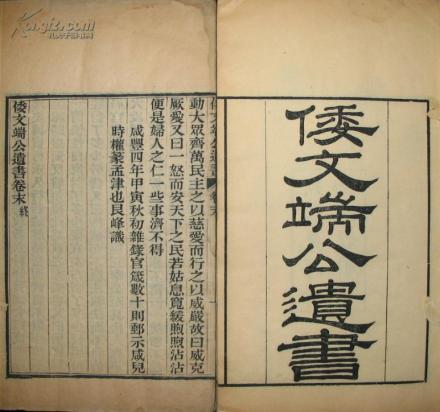 倭文端公遺書
倭文端公遺書 卷末
動大眾齊萬民主之以慈愛而行之以威嚴故曰威克
厥愛又曰一怒而安天下之民若姑息寬緩煦煦沾沾
便是婦人之仁一些事濟不得
咸豐四年甲寅秋初雜錄官箴數十則郵示咸兒
時權篆孟津也艮峰識
倭文端公遺書卷末終